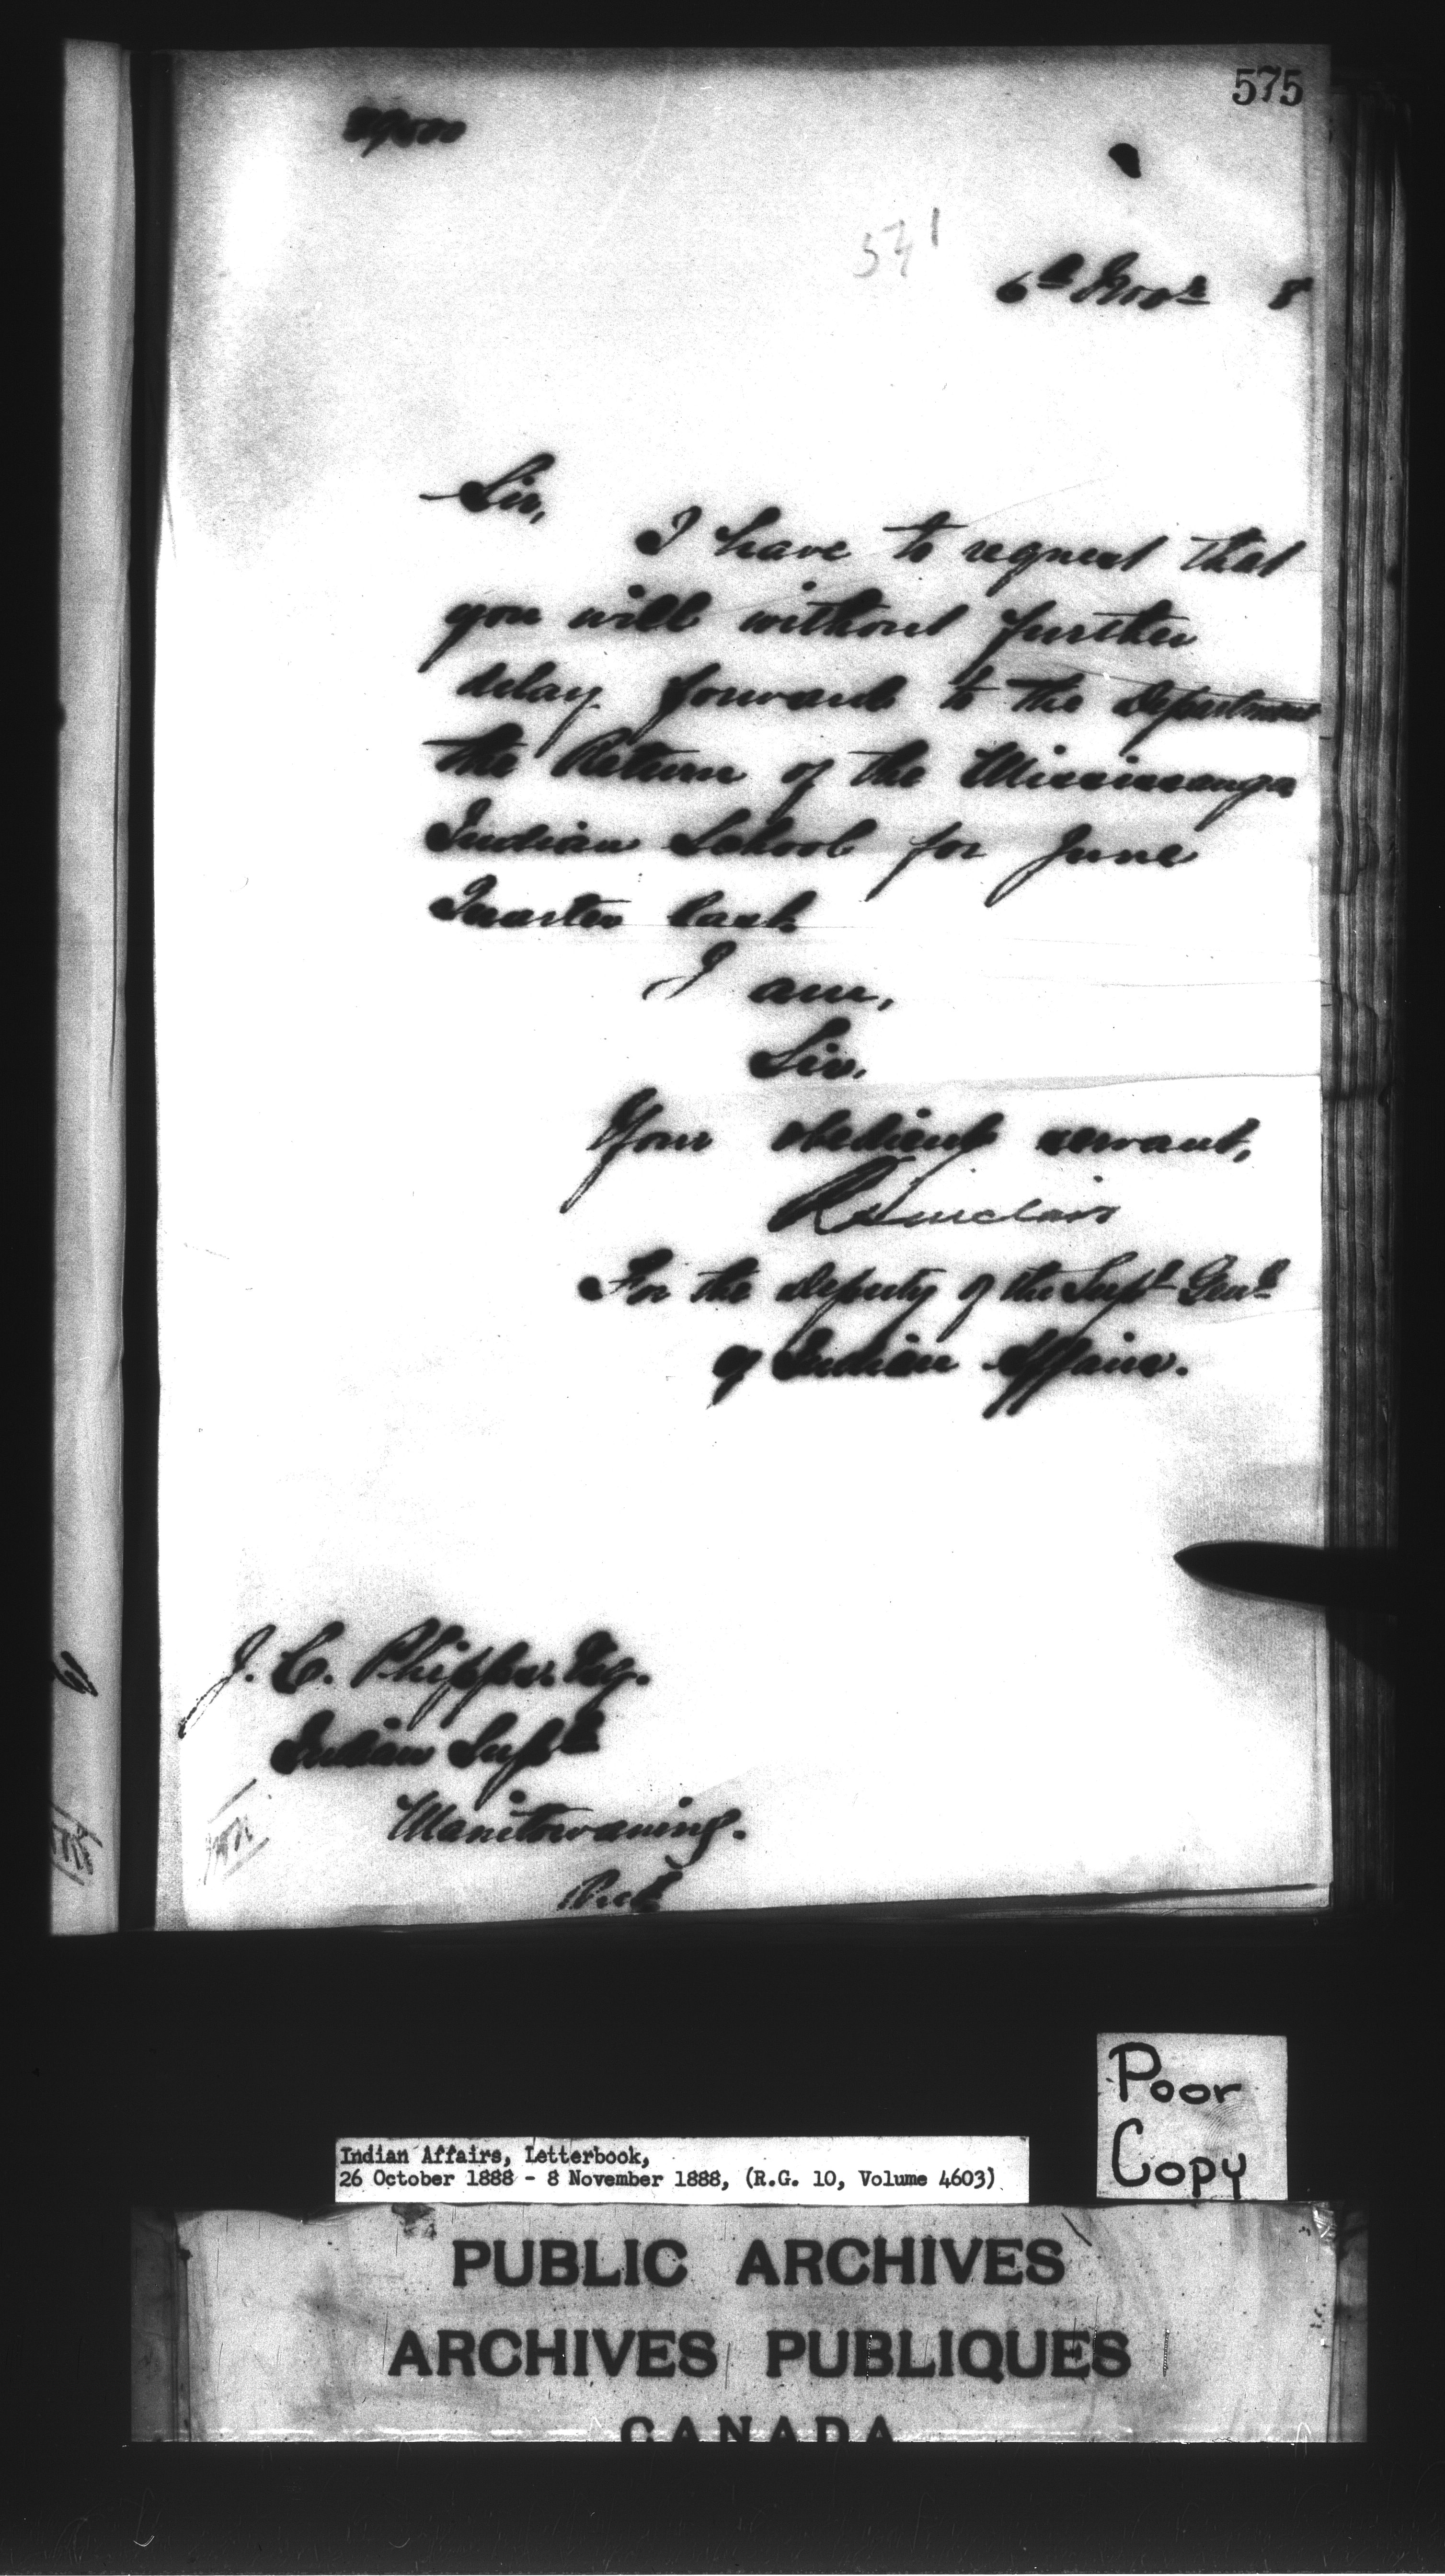 575
571
6th Novr 8
Sir,
I have to request that
you will without further
delay forward to the Department
the Return of the Mississauga
Indian School for June
Quarter last.
I am,
Sir,
Your obedient servant,
R Sinclair
For the Deputy of the Supt Genl
of Indian Affairs.
J. C. Phipps. Esq.
Indian Supt
Manitowaning.
Poor
Copy
Indian Affairs, Letterbook,
26 October 1888 - 8 November 1888, (R.G. 10, Volume 4603)
PUBLIC ARCHIVES
ARCHIVES PUBLIQUES
CANADA